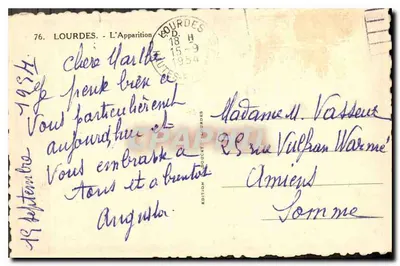 76. LOURDES. - L'Apparition
LOURDES
18 H
15-9
1954
19 septembre 1954
Chère Marthe
Je pense bien à
Vous particulièrement
aujourd'hui et
Vous embrasse à
tous et a bientot
Madame M. Vasseur
25 rue Vulfran Warmé
Amiens
Somme